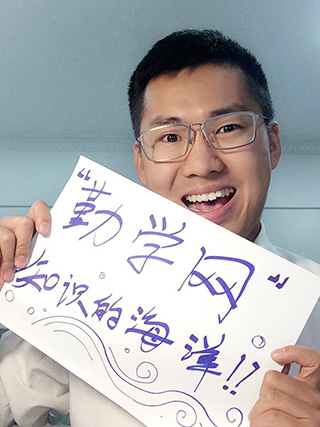 "勤学网"
知识的海洋!!